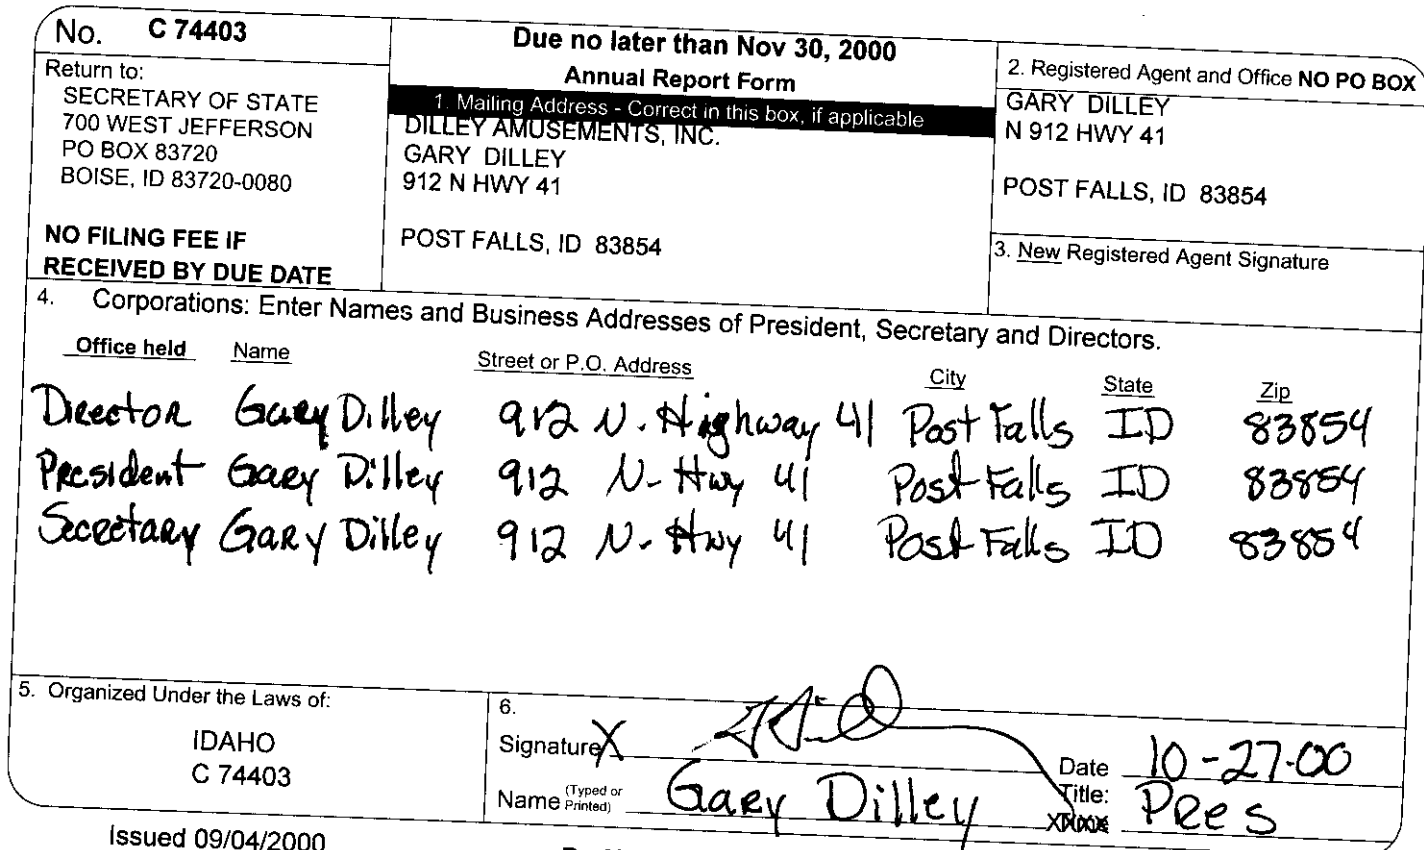 No. C 74403
Return to:
SECRETARY OF STATE
700 WEST JEFFERSON
PO BOX 83720
BOISE, ID 83720-0080
NO FILING FEE IF
RECEIVED BY DUE DATE
Due no later than Nov 30, 2000
Annual Report Form
1. Mailing Address - Correct in this box, if applicable
DILLEY AMUSEMENTS, INC.
GARY DILLEY
912 N HWY 41
POST FALLS, ID 83854
2. Registered Agent and Office NO PO BOX
GARY DILLEY
N 912 HWY 41
POST FALLS, ID 83854
3. New Registered Agent Signature
4. Corporations: Enter Names and Business Addresses of President, Secretary and Directors.
Office held Name Street or P.O. Address City State Zip
Director Gary Dilley 912 N. Highway 41 Post Falls ID 83854
President Gary Dilley 912 N. Hwy 41 Post Falls ID 83854
Secretary Gary Dilley 912 N. Hwy 41 Post Falls ID 83854
5. Organized Under the Laws of:
IDAHO
C 74403
6.
Signature X
Date 10-27-00
Name (Typed or Printed) Gary Dilley
Title: Pres
Issued 09/04/2000